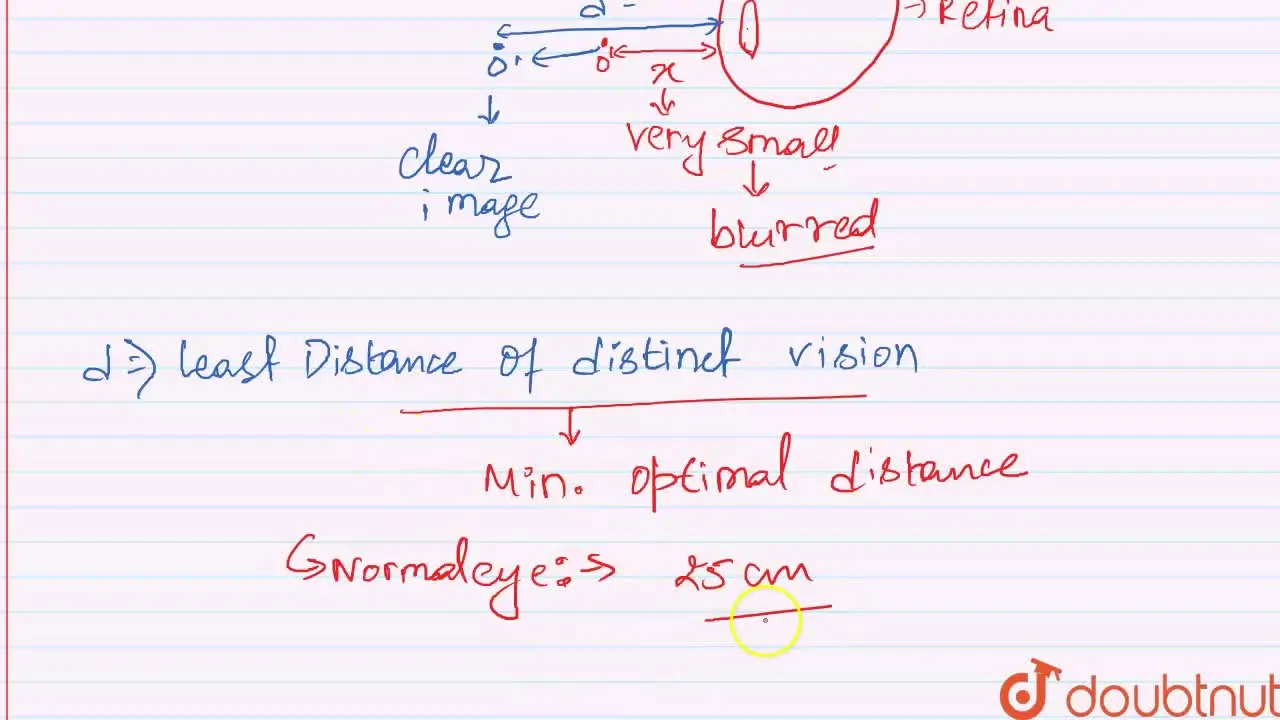 d =
→ Retina
O' O'
x
very small
clear
image
blurred
d ⇒ least Distance Of distinct vision
Min. Optimal distance
↳ Normal eye :→ 25 cm
doubtnut